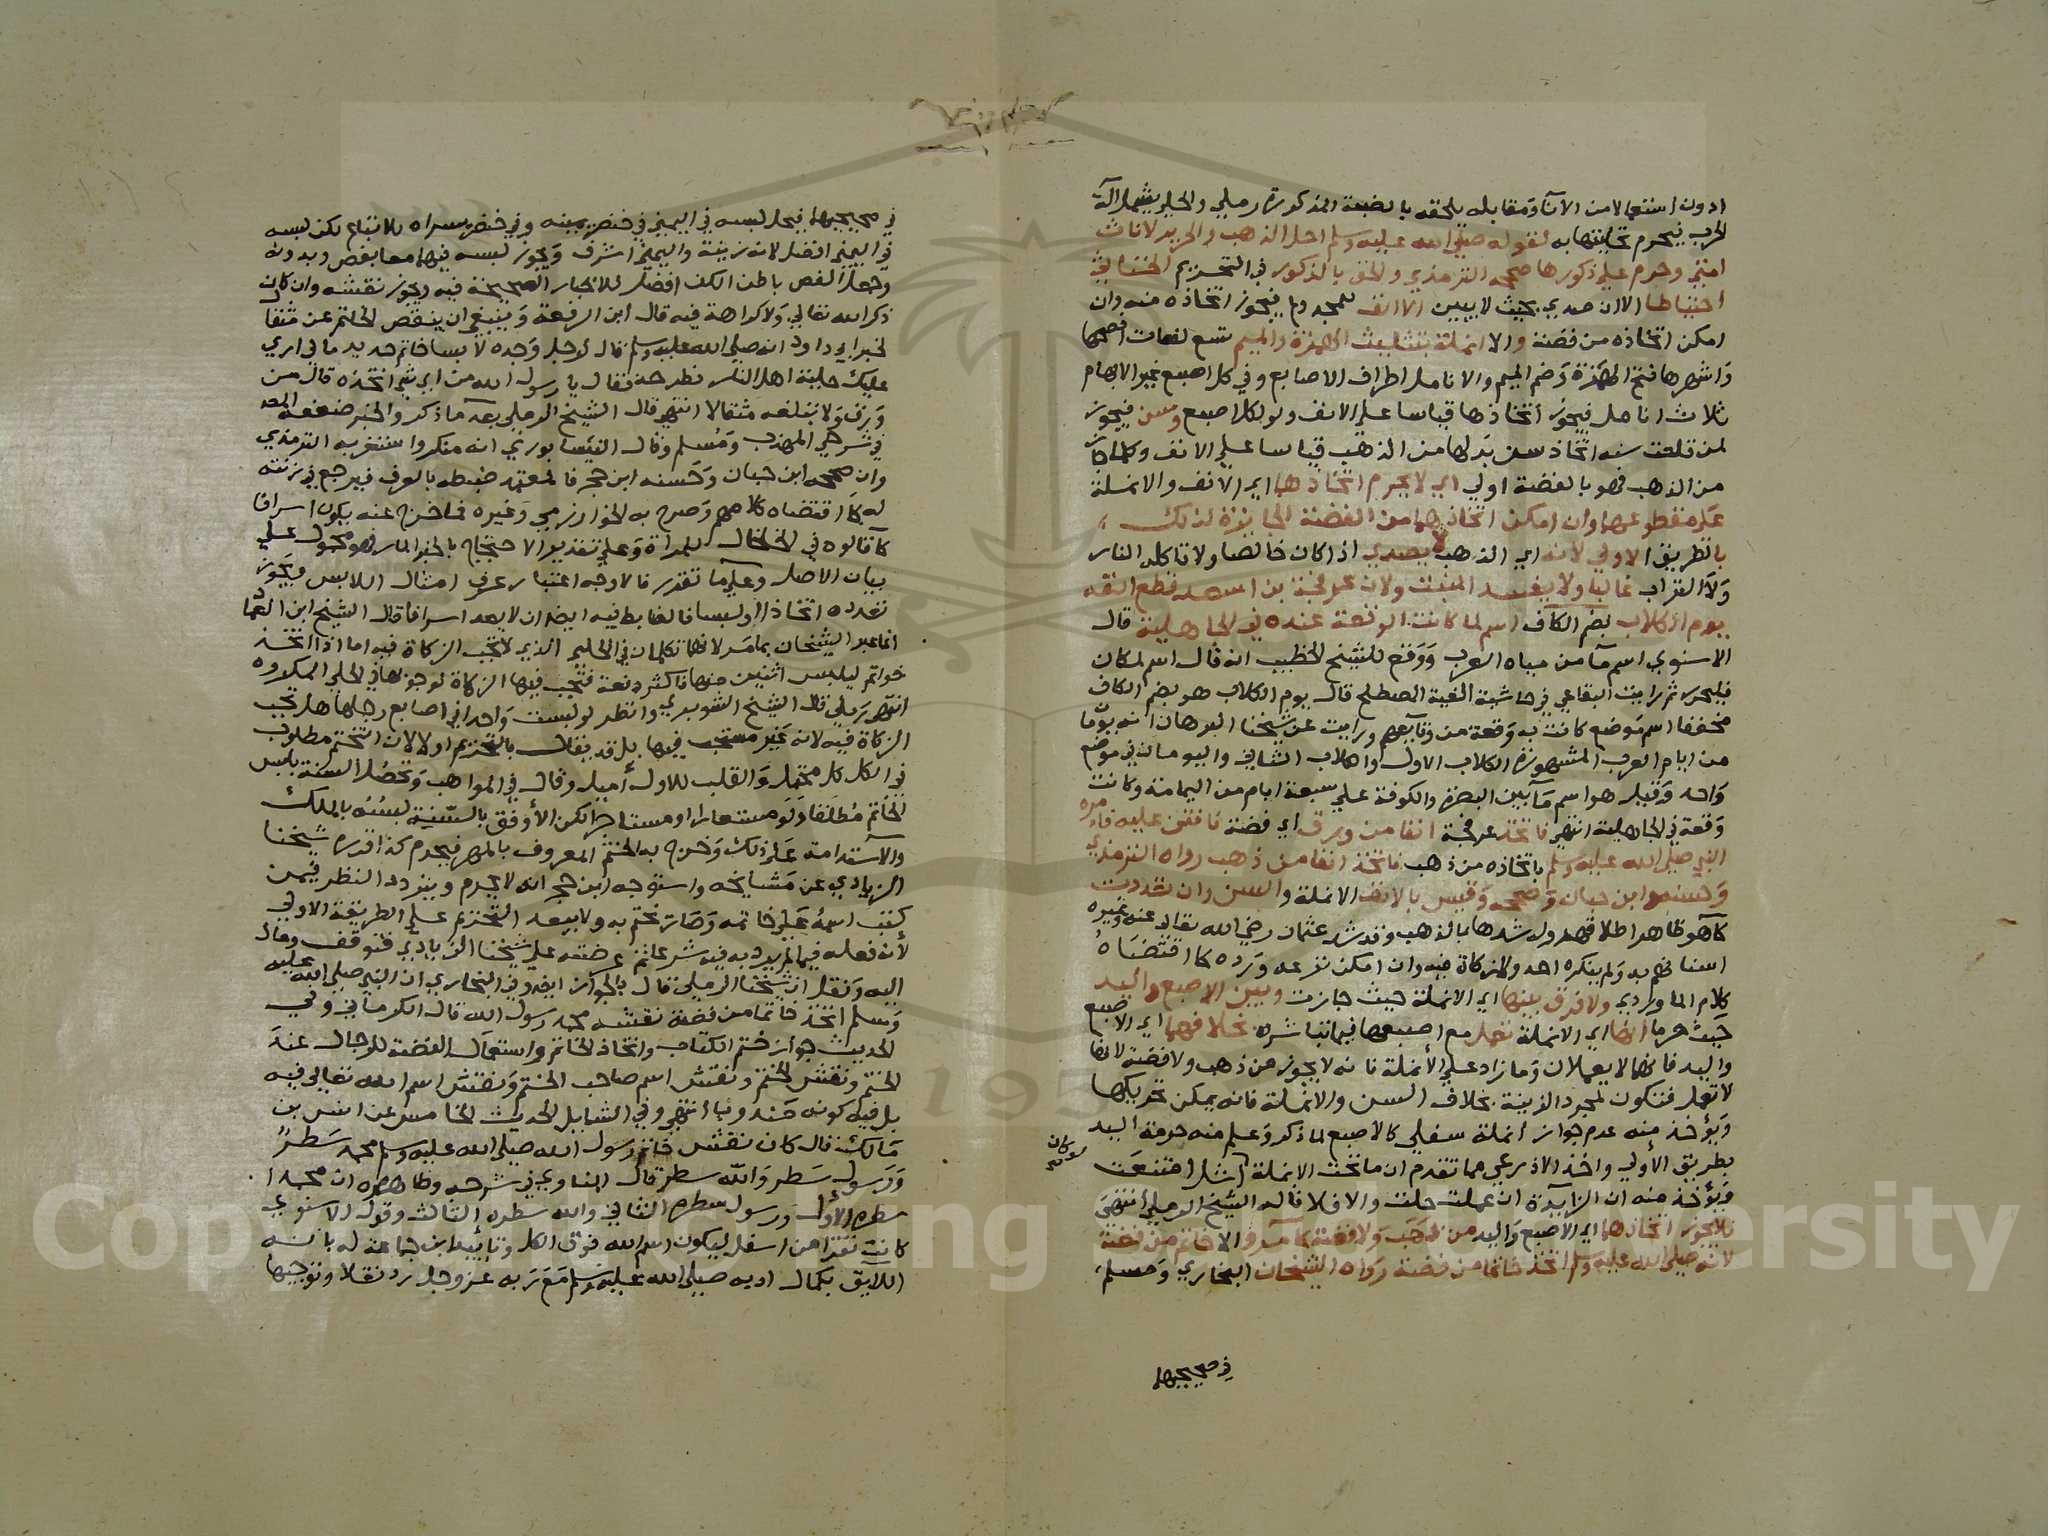 ادون استعمالا من الآنا ومقابله يلحقه بالضبة المذكورة رملي والحلي يشمل آلة
الحرب فيحرم تحليتها به لقوله صلي الله عليه وسلم احل الذهب والحرير لاناث
امتي وحرم علي ذكورها صححه الترمذي والحق بالذكور في التحريم الخناثي
احتياطا الا ان صدي بحيث لا يبين الا انف لمجدوع فيجوز اتخاذه منه وان
امكن اتخاذه من فضة والا انملة بتثليث الهمزة والميم تسع لغات افصحها
واشهرها فتح الهمزة وضم الميم والانامل اطراف الاصابع وفي كل اصبع غير الابهام
ثلاث انامل فيجوز اتخاذها قياسا علي الانف ولو لكل اصبع وسن فيجوز
لمن قلعت سنه اتخاذ سن بدلها من الذهب قياسا علي الانف وكلما جاز
من الذهب فهو بالفضة اولي اي لا يحرم اتخاذها اي الانف والانملة
علي مقطوعها وان امكن اتخاذهما من الفضة الجايزة لذلك
بالطريق الاولي لانه اي الذهب لا يصدي اذا كان خالصا ولا تاكله النار
ولا التراب غالبا ولا يفسد المنبت ولان عرفجة بن اسعد قطع انفه
يوم الكلاب بضم الكاف اسم لما كانت الوقعة عنده في الجاهلية قال
الاسنوي اسم ما من مياه العرب ووقع للشيخ الخطيب انه قال اسم لمكان
فليحرر ثم رايت البقاعي في حاشية الفية المصطلح قال يوم الكلاب هو بضم الكاف
مخففا اسم موضع كانت به وقعة من وقايعهم ورايت عن شيخنا البرهان انه يوما
من ايام العرب المشهورة الكلاب الاول والكلاب الثاني واليومان في موضع
واحد وقيل هو اسم ما بين البصرة والكوفة علي سبعة ايام من اليمامة وكانت
وقعة في الجاهلية انتهي فاتخذ عرفجة انفا من ورق اي فضة فانتن عليه فامره
النبي صلي الله عليه وسلم باتخاذه من ذهب فاتخذ انفا من ذهب رواه الترمذي
وحسنه وابن حبان وصححه وقيس بالانف الانملة والسن وان تعددت
كما هو ظاهر اطلاقهم وله شدها بالذهب وقد شد عثمان رضي الله تعالي عنه وغيره
اسنانهم به ولم ينكره احد ولا زكاة فيه وان امكن نزعه ورده كما اقتضاه
كلام الماوردي ولا فرق بينها اي الانملة حيث جازت وبين الاصبع واليد
حيث حرما انها اي الانملة تعمل مع اصبعها فيما تباشره بخلافهما اي الاصبع
واليد فانهما لا يعملان وما زاد علي الأنملة فانه لا يجوز من ذهب ولا فضة لانها
لا تعمل فتكون لمجرد الزينة بخلاف السن والانملة فانه يمكن تحريكها
ويؤخذ منه عدم جواز انملة سفلي كالاصبع لما ذكر وعلم منه حرمة اليد
بطريق الأولي واخذ الاذرعي مما تقدم ان ما تحت الانملة اشل امتنعت
ويؤخذ منه ان الزايدة ان عملت حلت والا فلا قاله الشيخ الرملي انتهي
فلا يجوز اتخاذهما اي الاصبع واليد من ذهب ولا فضة كما مر والا خاتم من فضة
لانه صلي الله عليه وسلم اتخذ خاتما من فضة رواه الشيخان البخاري ومسلم
في صحيحيهما
في صحيحيهما فيحل لبسه في اليمني في خنصر يمينه وفي خنصر يسراه للاتباع لكن لبسه
في اليمني افضل لانه زينة واليمني اشرف ويجوز لبسه فيهما معا بفص وبدونه
وجعل الفص باطن الكف افضل للاخبار الصحيحة فيه ويجوز نقشه وان كان
ذكر الله تعالي ولا كراهة فيه قال ابن الرفعة وينبغي ان ينقص الخاتم عن مثقال
لخبر ابي داود انه صلي الله عليه وسلم قال لرجل وجده لابسا خاتم حديد ما لي اري
عليك حلية اهل النار فطرحه فقال يا رسول الله من اي شي اتخذه قال من
ورق ولا تبلغه مثقالا انتهي قال الشيخ الرملي بعد ما ذكر والخبر ضعفه
في شرحي المهذب ومسلم وقال النيسابوري انه منكر واستغربه الترمذي
وان صححه ابن حبان وحسنه ابن حجر فالمعتمد ضبطه بالعرف فيرجع في زنته
له كما اقتضاه كلامهم وصرح به الخوارزمي وغيره فما خرج عنه يكون اسرافا
كما قالوه في الخلخال للمراة وعلي تقدير الاحتجاج بالخبر المار فهو محمول علي
بيان الاصل وعلي ما تقرر فالاوجه اعتبار عرف امثال اللابس ويجوز
تعدده اتخاذا ولبسا فالضابط فيه ايضا ان لا يعد اسرافا قال الشيخ ابن العماد
انما عبر الشيخان بما مر لانهما تكلما في الحلي الذي لا تجب الزكاة فيه اما اذا اتخذ
خواتم ليلبس اثنين منها فاكثر دفعة فتجب فيها الزكاة لوجوبها في الحلي المكروه
انتهي رملي قال الشيخ الشوبري وانظر لو لبست واحدا في اصابع رجلها هل تجب
الزكاة فيه لانه غير مستحب فيها بل قد يقال بالتحريم اولا لان التختم مطلوب
في الكل كل محتمل والقلب للاول أميل وقال في المواهب وتحصل السنة بلبس
الخاتم مطلقا ولو مستعارا او مستاجرا لكن الأوفق بالسنية لبسه بالملك
والاستدامة علي ذلك وخرج به الختم المعروف بالمهر فيحرم كذا اقره شيخنا
الزيادي عن مشايخه واستوجه ابن حجر انه لا يحرم ويتردد النظر فيمن
كتب اسمه علي خاتمه وصار يختم به ولا يبعد التحريم علي الطريقة الاولي
لأنه فعله فيما لم يرد به فيه شرعا ثم عرضته علي شيخنا الزيادي فتوقف ومال
اليه ونقل ان شيخنا الرملي قال بالجواز ايضا وفي البخاري ان النبي صلي الله عليه
وسلم اتخذ خاتما من فضة نقشه محمد رسول الله قال الكرماني وفي
الحديث جواز ختم الكتاب واتخاذ الخاتم واستعمال الفضة للرجال عند
الختم ونقش الختم ونقش اسم صاحب الختم ونقش اسم الله تعالي فيه
بل فيه كونه مندوبا انتهي وفي الشمايل الحديث الخامس عن انس بن
مالك قال كان نقش خاتم رسول الله صلي الله عليه وسلم محمد سطر
ورسول سطر والله سطر قال المناوي في شرحه وظاهره ان محمدا
سطره الأول ورسول سطره الثاني والله سطره الثالث وقول الاسنوي
كانت تقرا من اسفل ليكون اسم الله فوق الكل وتاييد ابن جماعة له بانه
اللايق بكمال ادبه صلي الله عليه وسلم مع ربه عز وجل رد نقلا وتوجيها
Copyright © King Saud University
195